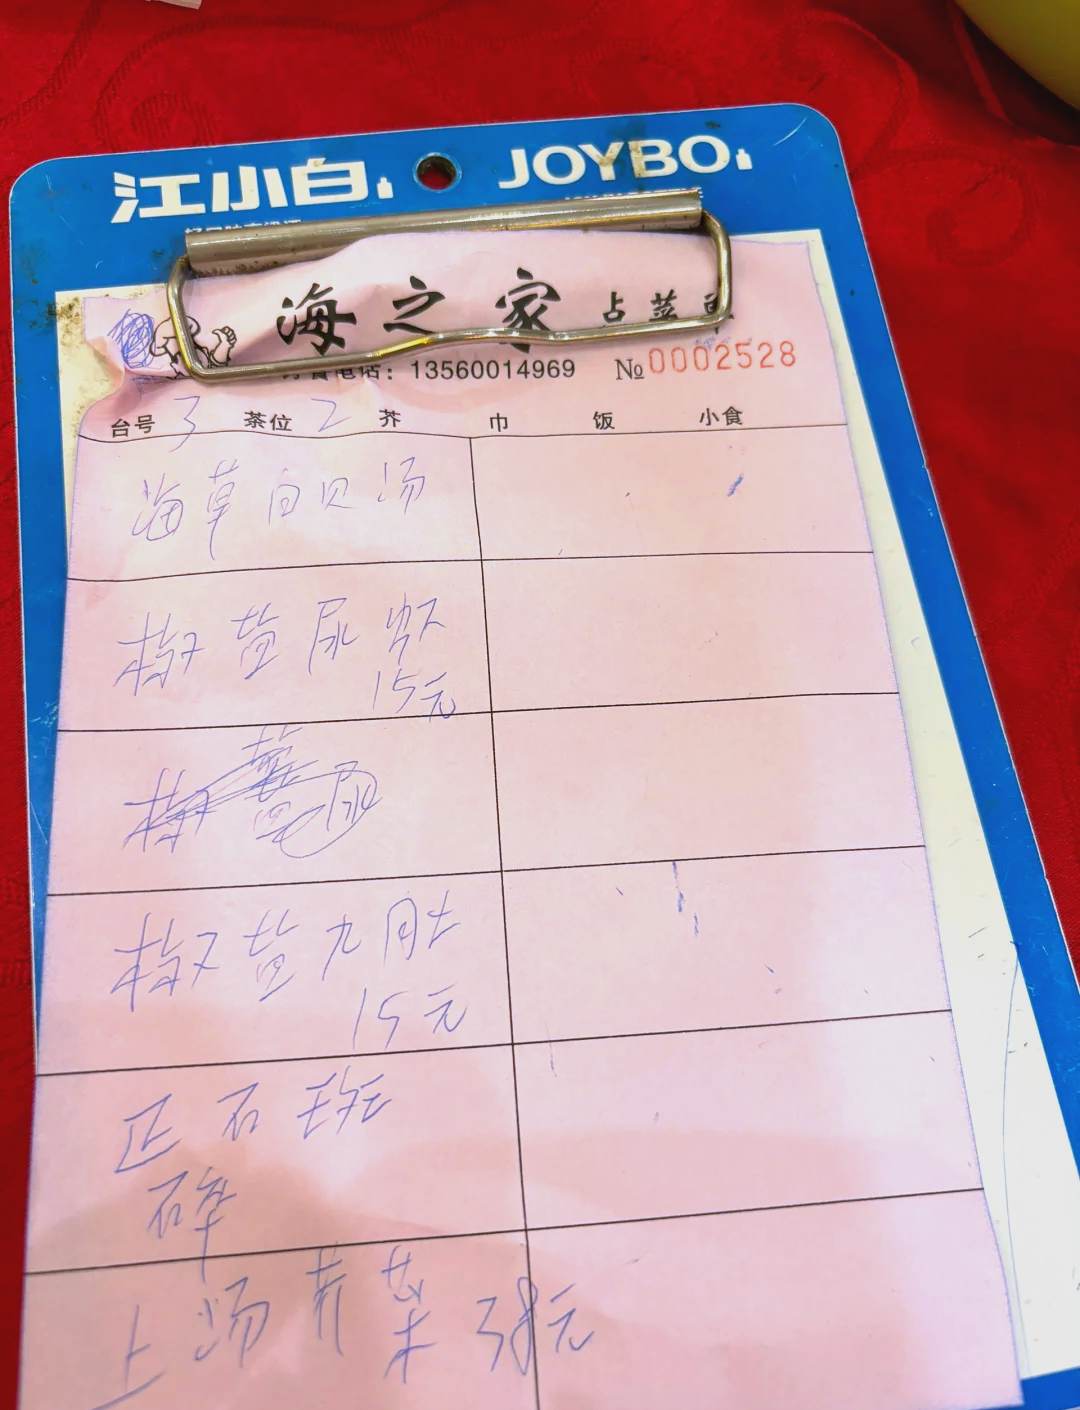 江小白 JOYBO
海之家 占菜单
订餐电话：13560014969 № 0002528
台号 3 茶位 2 芥 巾 饭 小食
海草白贝汤
椒盐尿虾
15元
椒盐九肚
15元
正石斑
上汤芥菜 38元